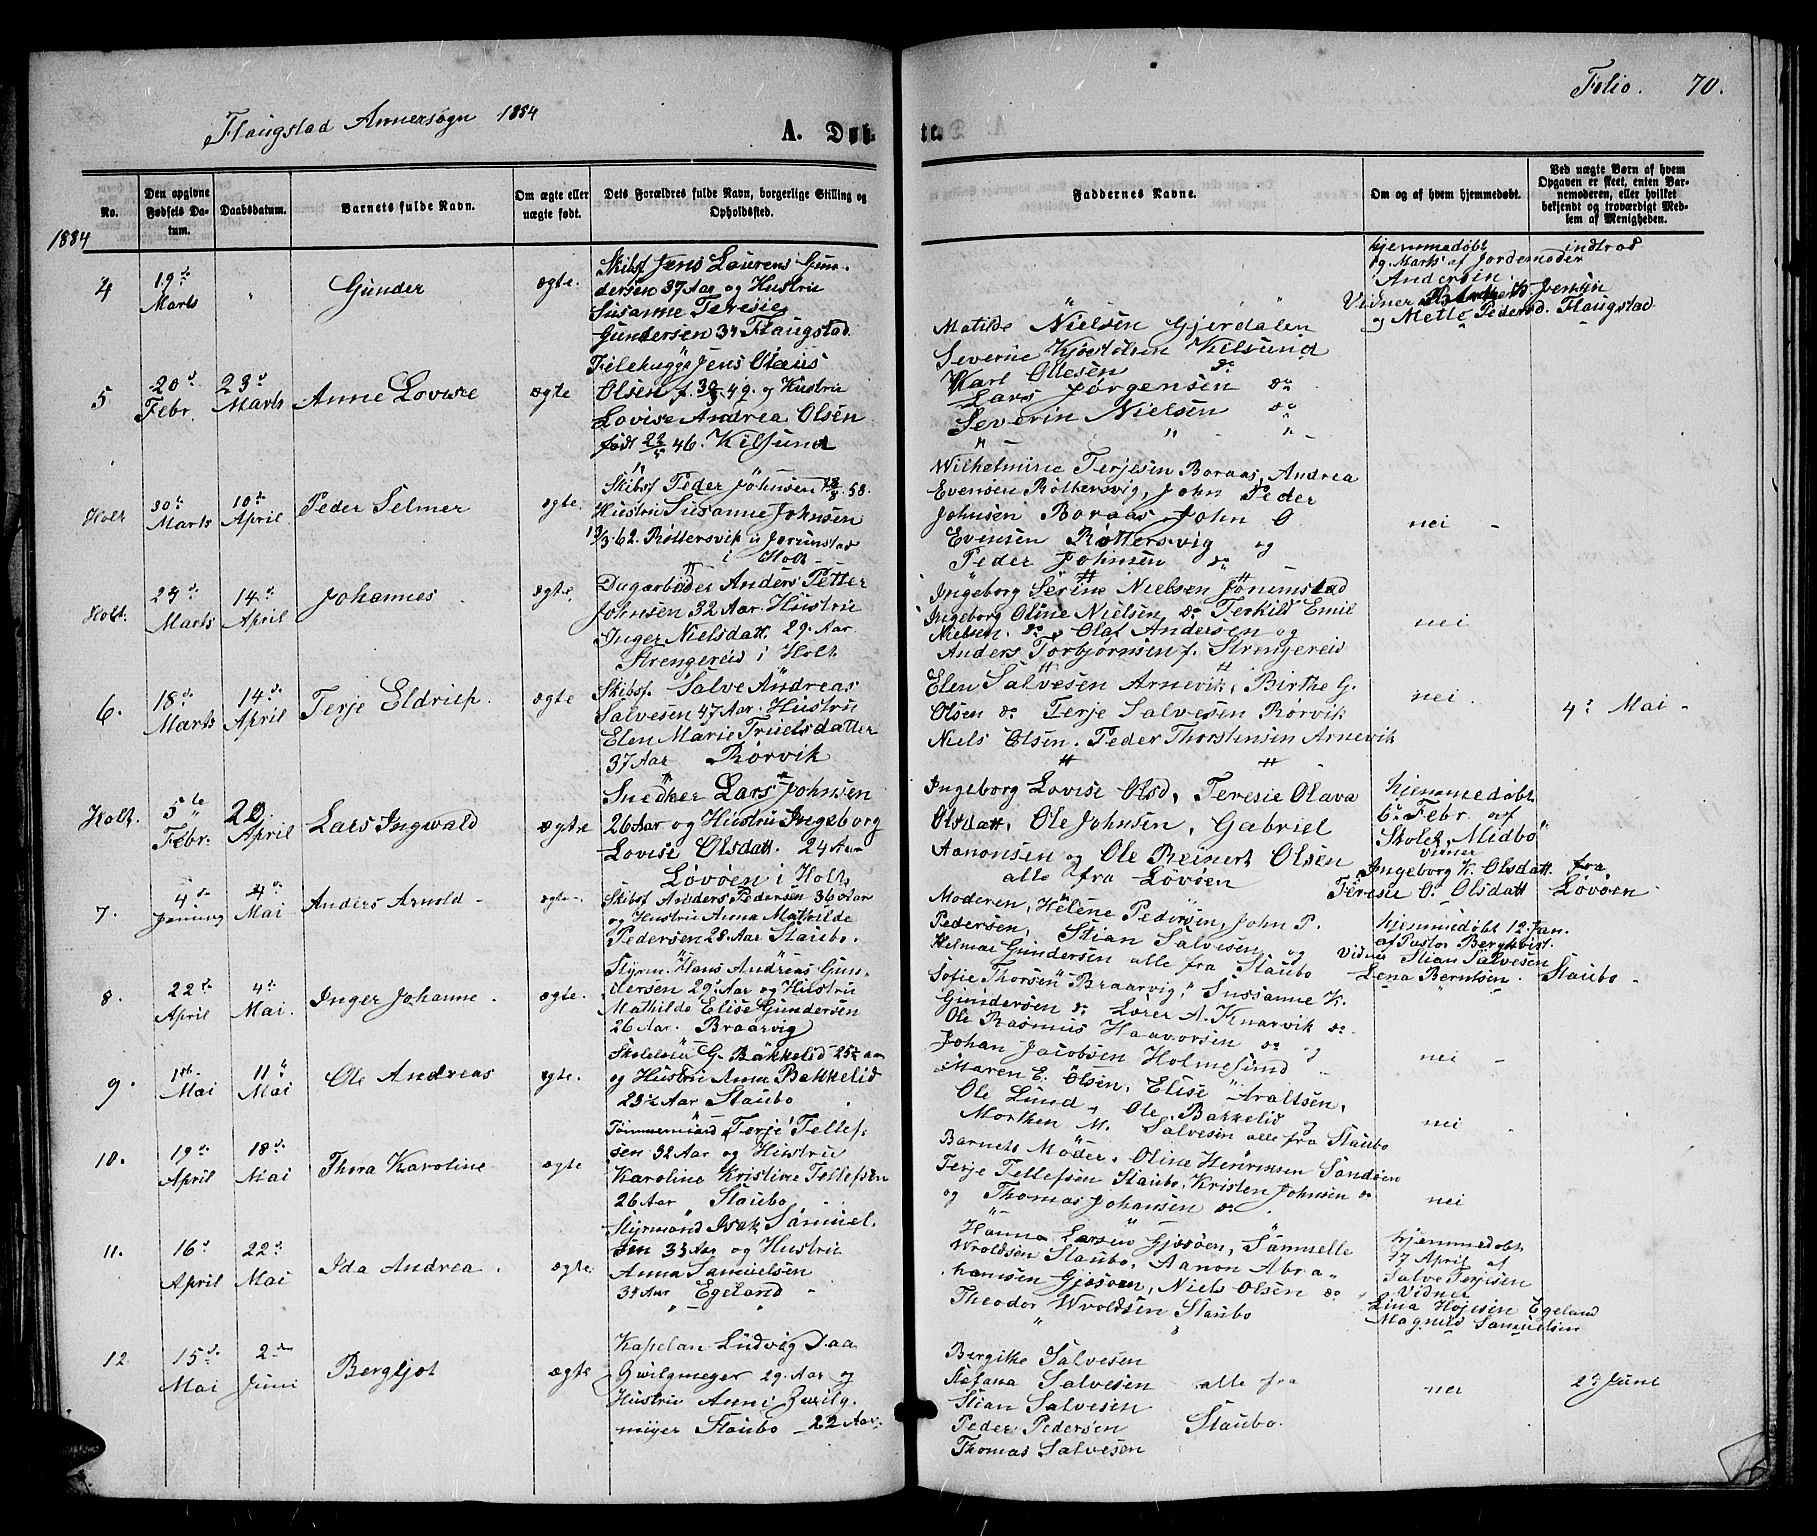 Flaugstad Annexsogn 1884
A. Døb-
te.
Folio. 70.
No.
Den opgivne Fødsels Datum.
Daabsdatum.
Barnets fulde Navn.
Om ægte eller uægte født.
Dets Forældres fulde Navn, borgerlige Stilling og Opholdsted.
Faddernes Navne.
Om og af hvem hjemmedøbt.
Ved uægte Børn af hvem Opgaven er skeet, enten Barnemoderen, eller hvilket bekjendt og troværdigt Medlem af Menigheden.
1884
4
19de Marts
"
Gunder
ægte.
Skibsf Jens Laurens Gun-
dersen 37 Aar og Hustru
Susanne Teresie
Gundersen 34 Flaugstad.
hjemmedøbt
Marts af Jordemoder
Andersen
Vidner
og Mette Pedersd. Flaugstad
5
20d Febr.
23d Marts
Anne Lovise
ægte
Jens Olaus
Olsen f. 49. og Hustru
Lovise Andrea Olsen
født 46. Kilsund
Matilde Nielsen Gjerdalen
Severine Kjøstolsen Kilsund
Karl Ottesen do
Lars Jørgensen do
Severin Nielsen do
Holt
30te Marts
10de April
Peder Selmer
ægte.
Skibsf Peder Johnsen 58.
Hustru Susanne Johnsen
19/3.62. Røttersvik
i Holt
Wilhelmine Terjesen Boraas, Andrea
Evensen Røttersvig, John Peder
Johnsen Boraas, John O
Evensen Røttersvig og
Peder Johnsen do
nei
Holt.
24de Marts
14de April
Johannes
ægte.
Dagarbeider Anders Petter
Johnsen 32 Aar. Hustru
Inger Nielsdatt. 29. Aar.
Strengereid i Holt
Ingeborg Serine Nielsen Jorunstad
Ingeborg Oline Nielsen do Terkild Emil
Nielsen. do, Olaf Andersen og
Anders Torbjørnsen f. Strengereid
nei
6.
18de Marts
14de April
Terje Eldriep.
ægte
Skibsf. Salve Andreas
Salvesen 47 Aar. Hustru
Elen Marie Truelsdatter
37 Aar Rørvik
Elen Salvesen Arnevik, Birthe G.
Olsen do Terje Salvesen Rørvik
Niels Olsen. Peder Thorstensen Arnevik
nei.
4de Mai
Holt.
5te Febr.
22. April
Lars Ingwald
ægte
Snedker Lars Johnsen
26 Aar og Hustru Ingeborg
Lovise Olsdatt. 24 Aar
Løvøen i Holt
Ingeborg Lovise Olsd, Teresie Olava
Olsdatt. Ole Johnsen, Gabriel
Aanonsen og Ole Reinert Olsen
alle fra Løvøen
hjemmedøbt
6te Febr af
Skolel. Midbø
Vidner
Ingeborg K. Olsdatt. fra
Teresie O. Olsdatt Løvøen
7.
4de Januar
4de Mai
Anders Arnold
ægte
Skibsf Anders Pedersen 36 Aar
og Hustru Anna Mathilde
Pedersen 28 Aar Staubo.
Moderen, Helene Pedersen, John P.
Pedersen, Stian Salvesen
Helmai Gundersen alle fra Staubo
hjemmedøbt 12. Jan.
af Pastor Bergkvist.
Vidner Stian Salvesen
Lena Berntsen. Staubo
8.
22de April
4de Mai.
Inger Johanne
ægte.
Styrm. Hans Andreas Gun-
dersen 29 Aar og Hustru
Mathilde Elise Gundersen
26 Aar. Braarvig
Sofie Thorsen Braarvig, Sussanne K.
Gundersen do Lorer A. Knarvik do
Ole Rasmus Haavorsen do og
Johan Jacobsen Holmesund
nei
9.
1ste Mai
11te Mai
Ole Andreas
ægte.
G. Bakkelid 25½ aar
og Hustru Anna Bakkelid
23½ Aar Staubo
Maren E. Olsen, Elise Araltsen,
Ole Lund, Ole Bakkelid og
Morthen M. Salvesen alle fra Staubo
nei
10.
19de April
18de Mai
Thora Karoline
ægte
Tømmermand Terje Tellef-
sen 32 Aar og Hustru
Karoline Kristine Tellefsen
26 Aar Staubo
Barnets Moder, Oline Henriksen Sandøen
Terje Tellefsen Staubo, Kristen Johnsen do
og Thomas Johansen do.
nei
11.
16d April
22de Mai
Ida Andrea.
ægte
Styrmand Isak Samuel.
sen 33 Aar og Hustru
Anna Samuelsen
34 Aar Egeland
Hanna Larsen Gjesøen, Samuelle
Wroldsen Staubo, Aanon Abra-
hamsen Gjesøen, Niels Olsen do
Theodor Wroldsen Staubo
hjemmedøbt
17 April af
Salve Terjesen
Vidner
Lina Højesen Egeland
Magnild Samuelsen
12
15de Mai
2den Juni
Bergljot
ægte
Kapelan Ludvig Daa
Zwilgmeyer 29. Aar og
Hustru Anni Zwilg
meyer Staubo 22 Aar.
Bergithe Salvesen
Stefana Salvesen alle fra
Stian Salvesen
Peder Pedersen Staubo.
Thomas Salvesen
nei
2d Juni